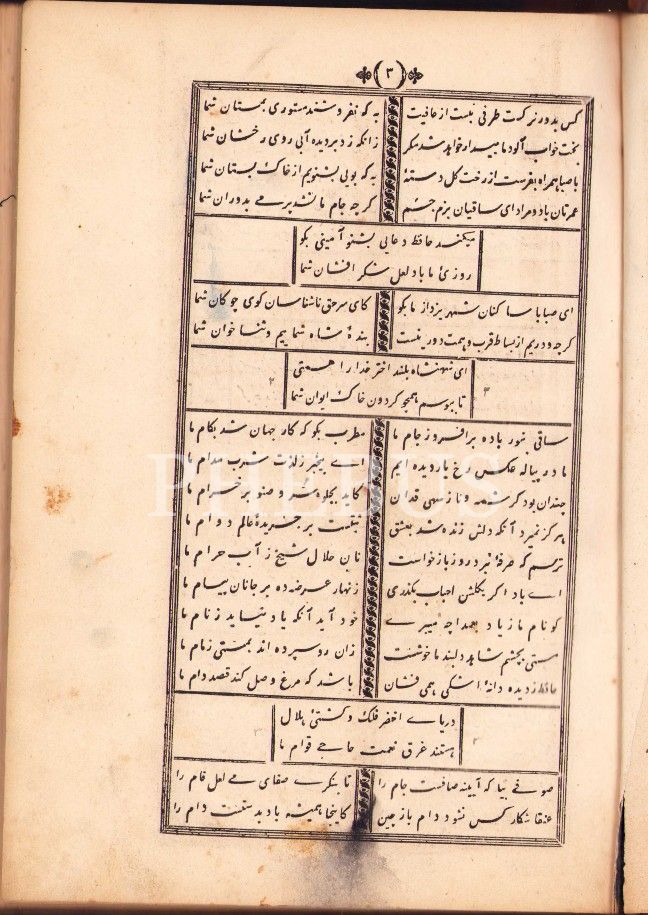 (٣)
کس بدور نرگست طرفی نبست از عافیت به که نفروشند مستوری بمستان شما
بخت خواب آلود ما بیدار خواهد شد مگر زانکه زد بر دیده آبی روی رخشان شما
با صبا همراه بفرست از رخت گل دستهٔ به که بویی بشنویم از خاک بستان شما
عمرتان باد و مراد ای ساقیان بزم جسم گرچه جام ما نشد پر می بدوران شما
میکند حافظ دعایی بشنو آمینی بگو
روزئ ما باد لعل شکر افشان شما
ای صبا با ساکنان شهر یزد از ما بگو کای سر حق ناشناسان کوی چوکان شما
گرچه دوریم از بساط قرب و همت دور نیست بندهٔ شاه شماییم و ثنا خوان شما
ای شهنشاه بلند اختر خدا را همتی
تا ببوسم همچو گردون خاک ایوان شما
ساقی بنور باده برافروز جام ما مطرب بگو که کار جهان شد بکام ما
ما در پیاله عکس رخ یار دیده ایم اے بیخبر ز لذت شرب مدام ما
چندان بود کرشمه و ناز سهی قدان کاید بجلوه سرو صنوبر خرام ما
هرگز نمیرد آنکه دلش زنده شد بعشق ثبتست بر جریدهٔ عالم دوام ما
ترسم که صرفهٔ نبرد روز بازخواست نان حلال شیخ ز آب حرام ما
اے باد اگر بگلشن احباب بگذری زنهار عرضه ده بر جانان پیام ما
گو نام ما ز یاد بعمدا چه میبرے خود آید آنکه یاد نیاید ز نام ما
مستی بچشم شاهد دلبند ما خوشست زان رو سپرده اند بمستی زمام ما
حافظ ز دیده دانهٔ اشکی همی فشان باشد که مرغ وصل کند قصد دام ما
دریاے اخضر فلک و کشتئ هلال
هستند غرق نعمت حاجے قوام ما
صوفے بیا که آیینه صافست جام را تا بنگرے صفای مے لعل فام را
عنقا شکار کس نشود دام باز چین کاینجا همیشه باد بدستست دام را
PHEBUS